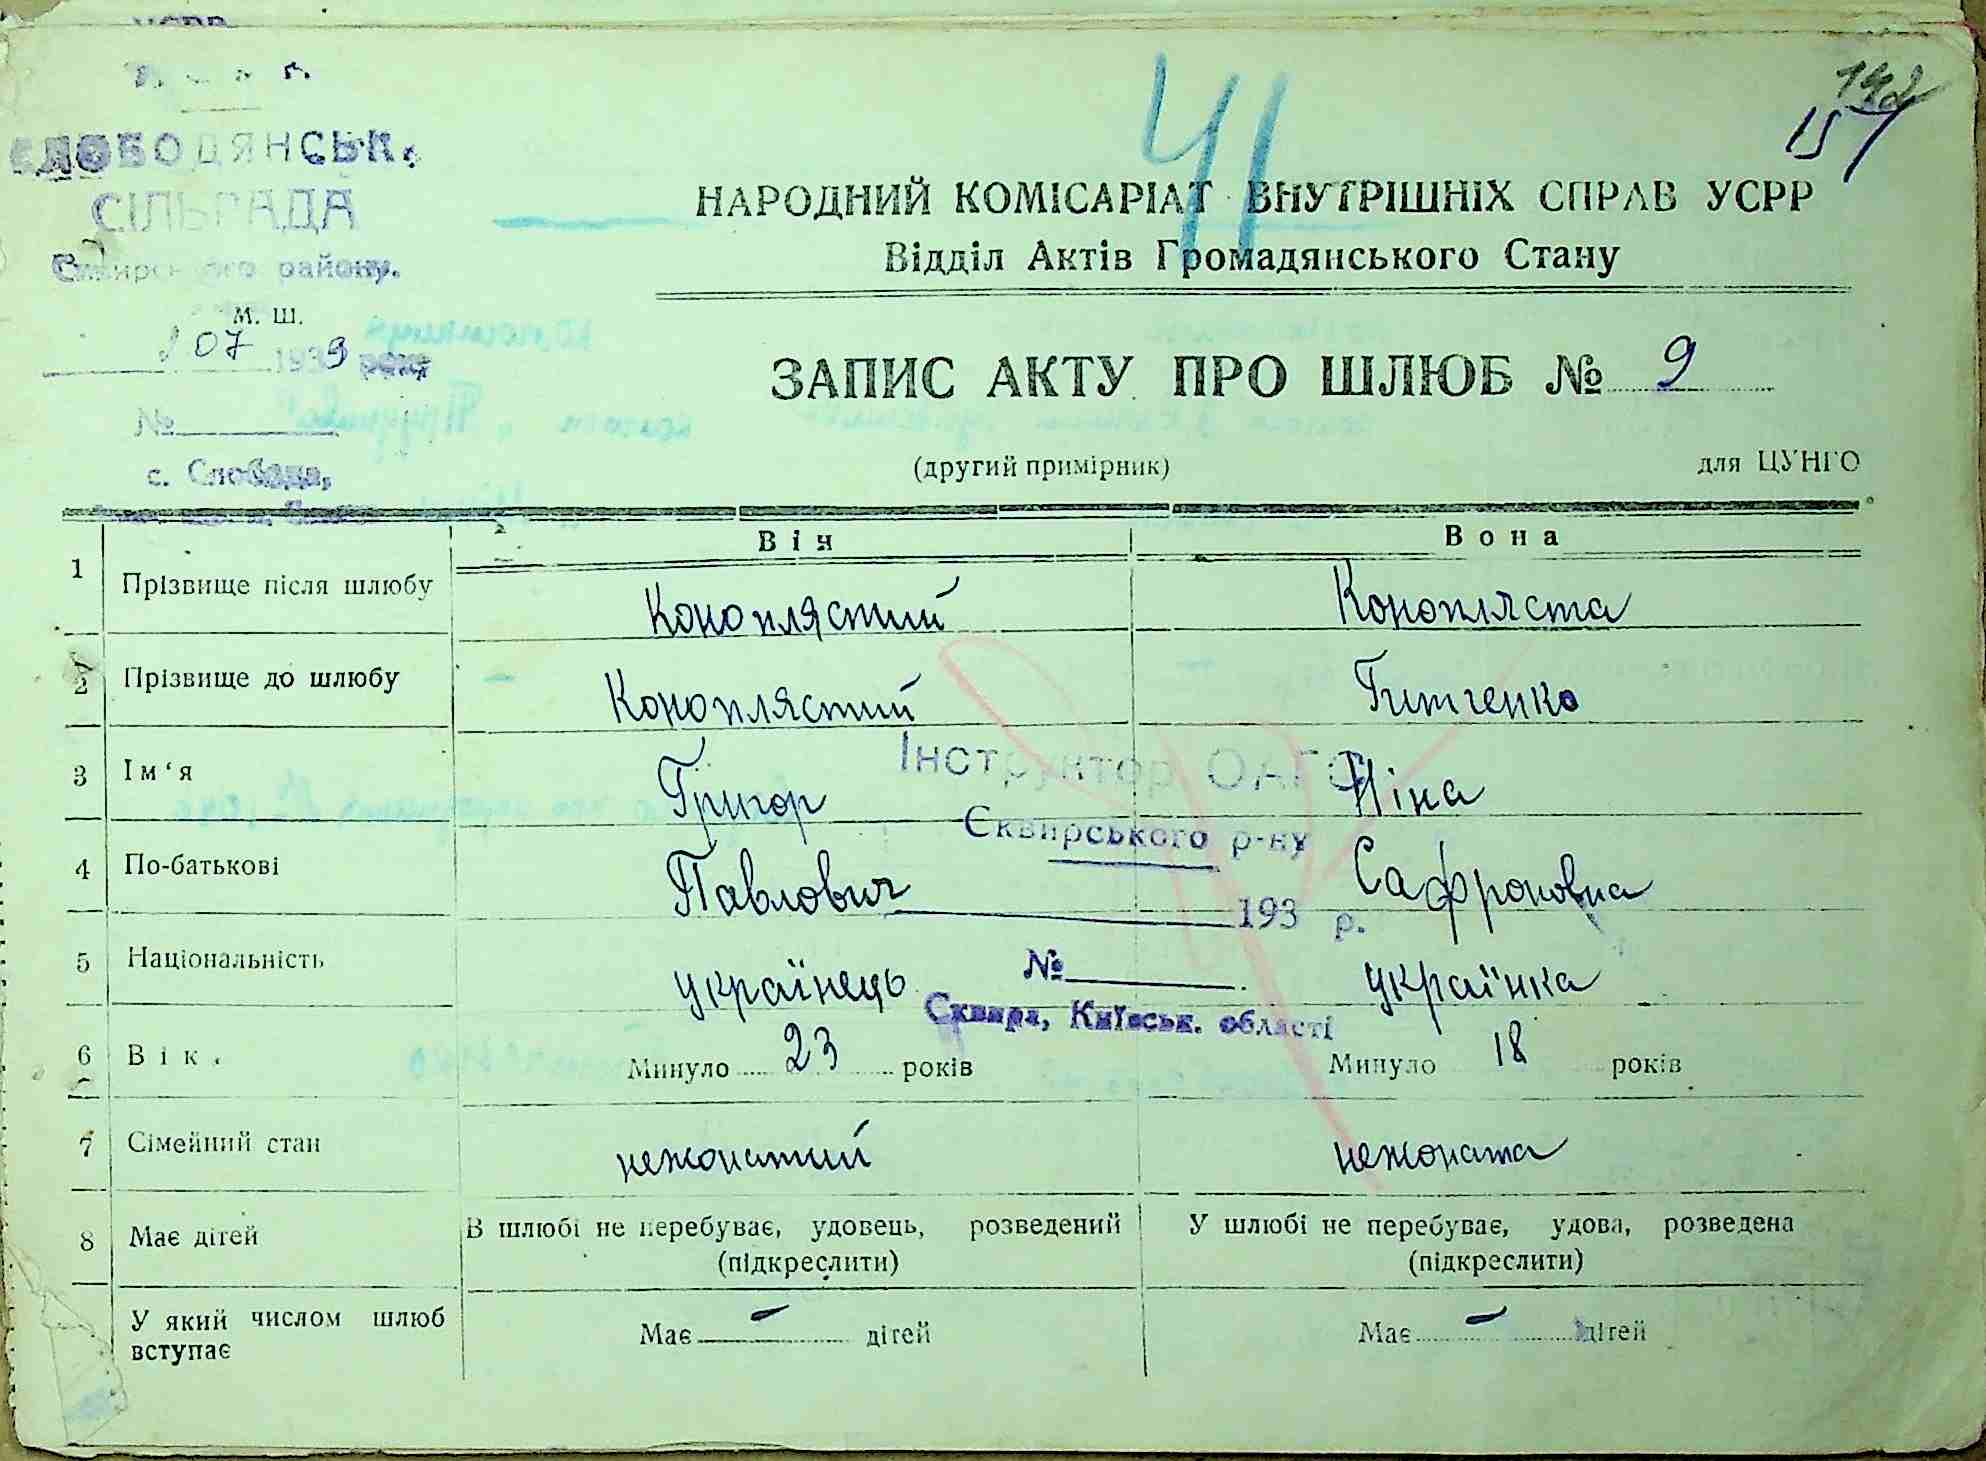 УСРР
СЛОБОДЯНСЬК.
СІЛЬРАДА
Сквирського району.
М. Ш.
07 1939 року
№
с. Слобода,
41
157
НАРОДНИЙ КОМІСАРІАТ ВНУТРІШНІХ СПРАВ УСРР
Відділ Актів Громадянського Стану
ЗАПИС АКТУ ПРО ШЛЮБ № 9
(другий примірник) для ЦУНГО
Він Вона
1 Прізвище після шлюбу Коноплястий Конопляста
2 Прізвище до шлюбу Коноплястий
3 Ім‘я Григор Ніна
Інструктор ОАГС
Сквирського р-ну
4 По-батькові Павлович Сафроновна
193 р.
5 Національність українець українка
№
Сквира, Київськ. області
6 Вік. Минуло 23 років Минуло 18 років
7 Сімейний стан нежонатий нежоната
8 Має дітей В шлюбі не перебуває, удовець, розведений У шлюбі не перебуває, удова, розведена
(підкреслити) (підкреслити)
У який числом шлюб вступає Має - дітей Має - дітей